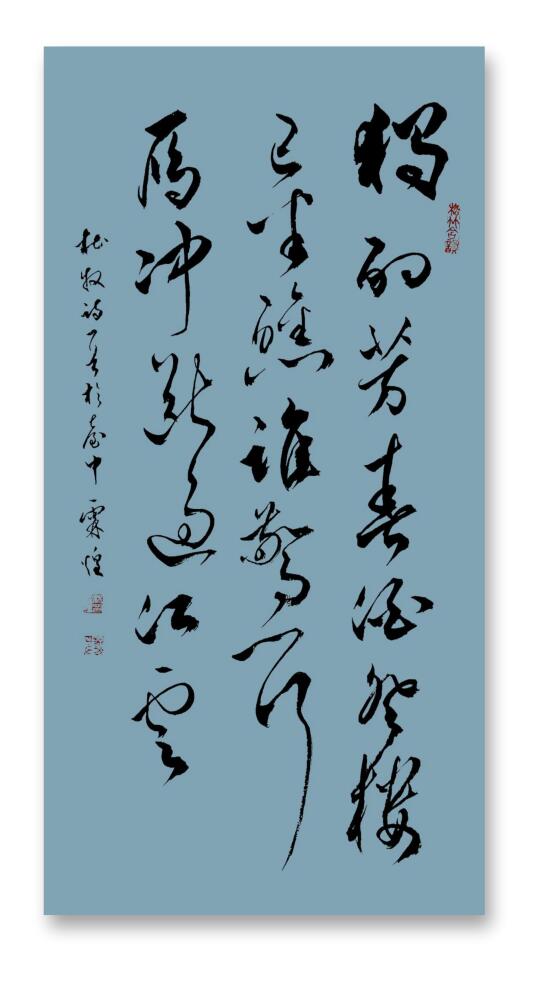 獨酌芳春酒登樓
已半醺誰驚一行
雁冲斷過江雲
杜牧詩一首於臺中霖煌